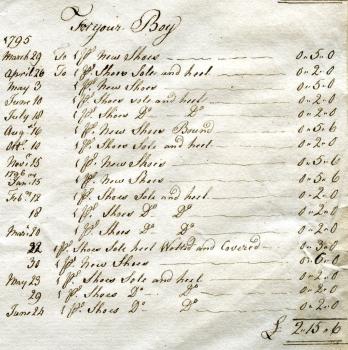 For your Boy
1795
March 29 To 1 Pr. New Shoes 0 " 5 " 0
April 26 To 1 Pr. Shoes Sole and heel 0 " 2 " 0
May 3 1 Pr. New Shoes 0 " 5 " 0
June 10 1 Pr. Shoes sole and heel 0 " 2 " 0
July 18 1 Pr. Shoes Do. Do. 0 " 2 " 0
Augt. 16 1 Pr. New Shoes Bound 0 " 5 " 6
Oct. 10 1 Pr. Shoes Sole and heel 0 " 2 " 0
Novr. 15 1 Pr. New Shoes 0 " 5 " 6
1796
Jan. 15 1 Pr. New Shoes 0 " 5 " 6
Feb. 12 1 Pr. Shoes Sole and heel 0 " 2 " 0
18 1 Pr. Shoes Do. Do. 0 " 2 " 0
Mar. 20 1 Pr. Shoes Do. Do. 0 " 2 " 0
22 1 Pr. Shoes Sole heel Welted and Covered 0 " 3 " 0
30 1 Pr. New Shoes 0 " 6 " 0
May 23 1 Pr. Shoes Sole and heel 0 " 2 " 0
29 1 Pr. Shoes Do. Do. 0 " 2 " 0
June 24 1 Pr. Shoes Do. Do. 0 " 2 " 0
£ 2 " 15 " 6